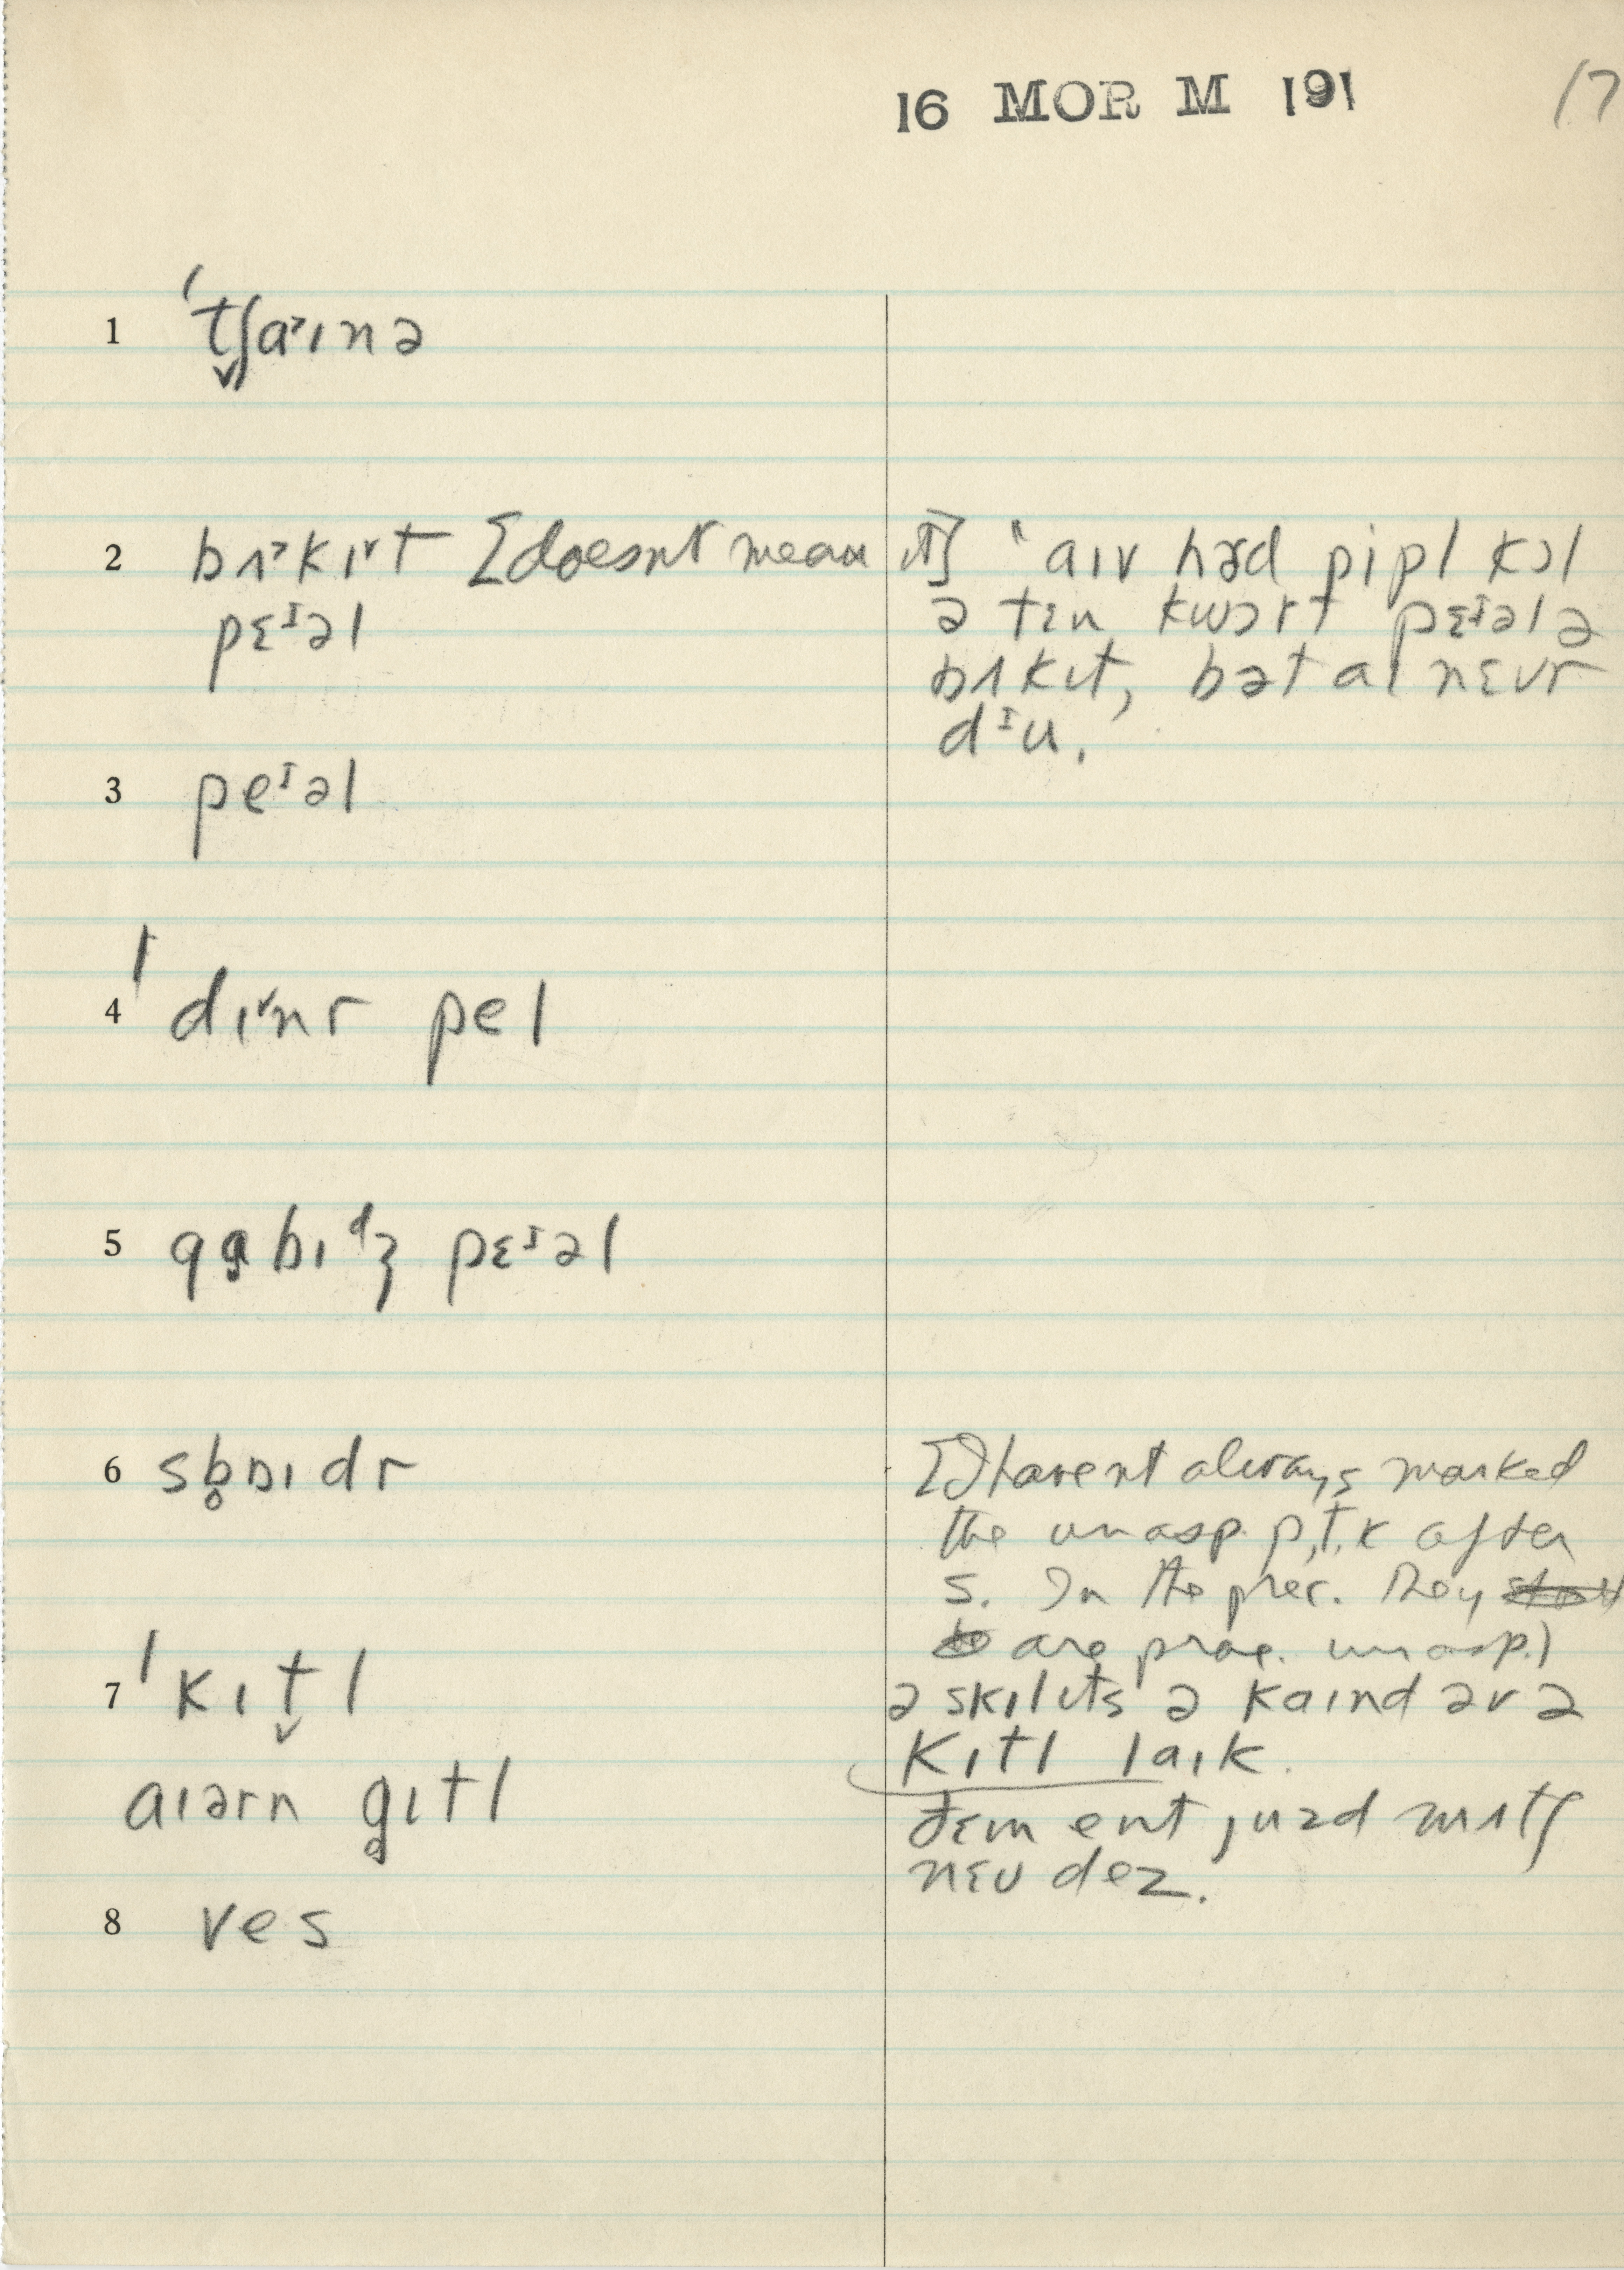 16 MOR M 191 17
1 ˈt̬ʃa˃ɪnə
2 bʌ˃kɪ˅t [doesnt mean it] ‛aɪv hɜd pipl kɔl
pɛᶦəl ə tɪn kwɔrt pɛᶦəl ə
bʌkɪt, bət aɪ nɛvr
dᶦu.’
3 peᶦəl
4 ˈdɪ˅nr pel
5 gɑbɪᵈʒ pɛᶦəl
6 sb̥ɒɪdr [I havent always marked
the unasp. p,t,k after
s. In the prec. they
are prac. unasp.]
7 ˈkɪt̬l ə skɪlɪts ə kaɪnd əv ə
kɪtl laɪk.
aɪərn g̥ɪtl ðɛm ent juzd mʌtʃ
nɛu dez.
8 ves